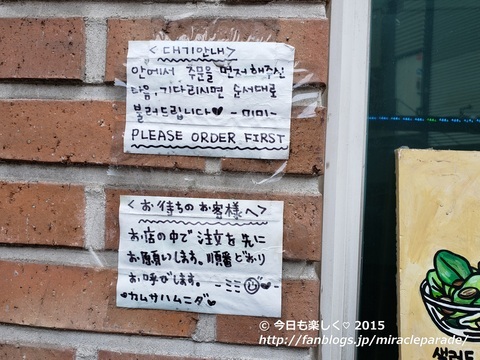 <대기안내>
안에서 주문을 먼저 해주신
다음, 기다리시면 순서대로
불러드립니다♥ -미미-
PLEASE ORDER FIRST
<お待ちのお客様へ>
お店の中で注文を先に
お願いします。順番どおり
お呼びします。 -ミミ☺♥-
♥カムサハムニダ♥
샐러드
© 今日も楽しく♡ 2015
http://fanblogs.jp/miracleparade/